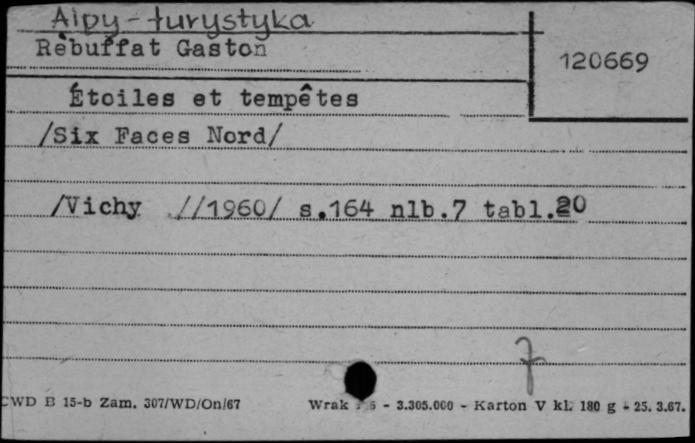 Alpy-turystyka
Rébuffat Gaston
120669
Étoiles et tempêtes
/Six Faces Nord/
/Vichy //1960/ s.164 nlb.7 tabl.20
7
CWD B 15-b Zam. 307/WD/On/67 Wrak - 3.305.000 - Karton V kl. 180 g - 25. 3.67.